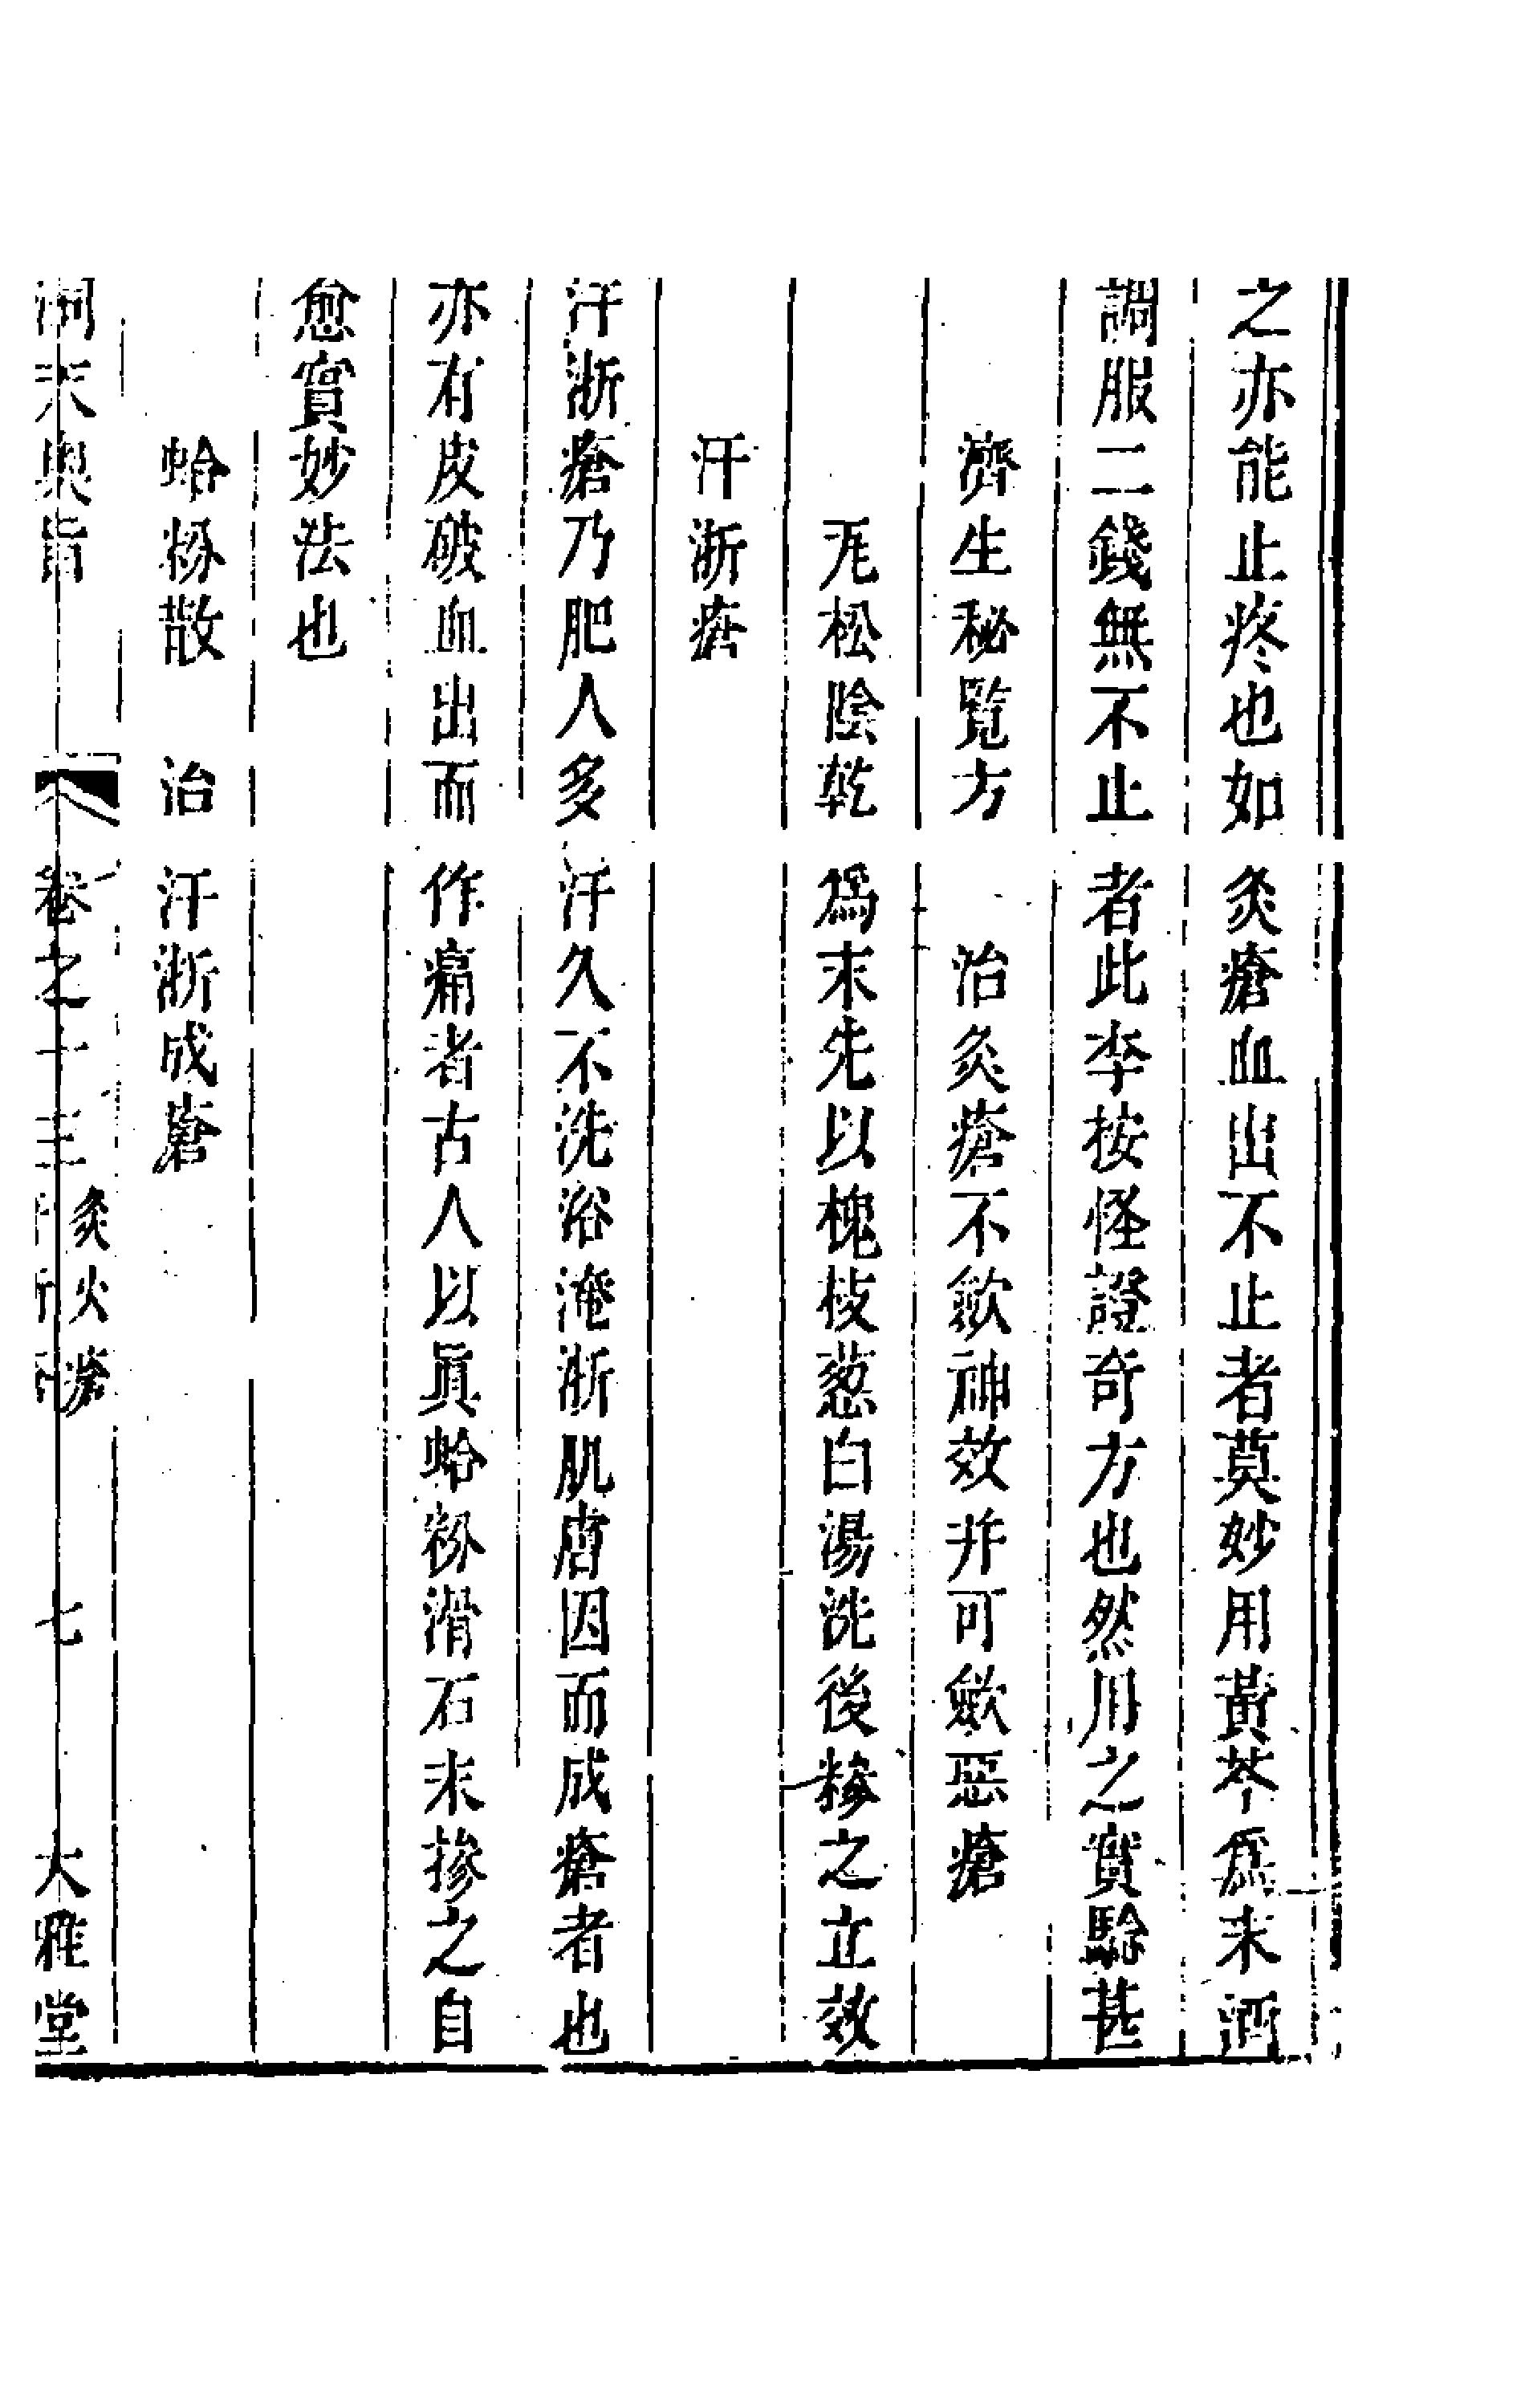 之亦能止疼也如灸瘡血出不止者莫妙用黃芩爲末酒
調服二錢無不止者此李按怪證奇方也然用之實驗甚
濟生秘覽方　治灸瘡不歛神效并可歛惡瘡
瓦松陰乾爲末先以槐枝葱白湯洗後糝之立效
汗淅瘡
汗淅瘡乃肥人多汗久不洗浴淹淅肌膚因而成瘡者也
亦有皮破血出而作痛者古人以眞蛤粉滑石末摻之自
愈實妙法也
蛤粉散　治汗淅成瘡
洞天奥旨　卷之十三　灸火瘡　七　大雅堂